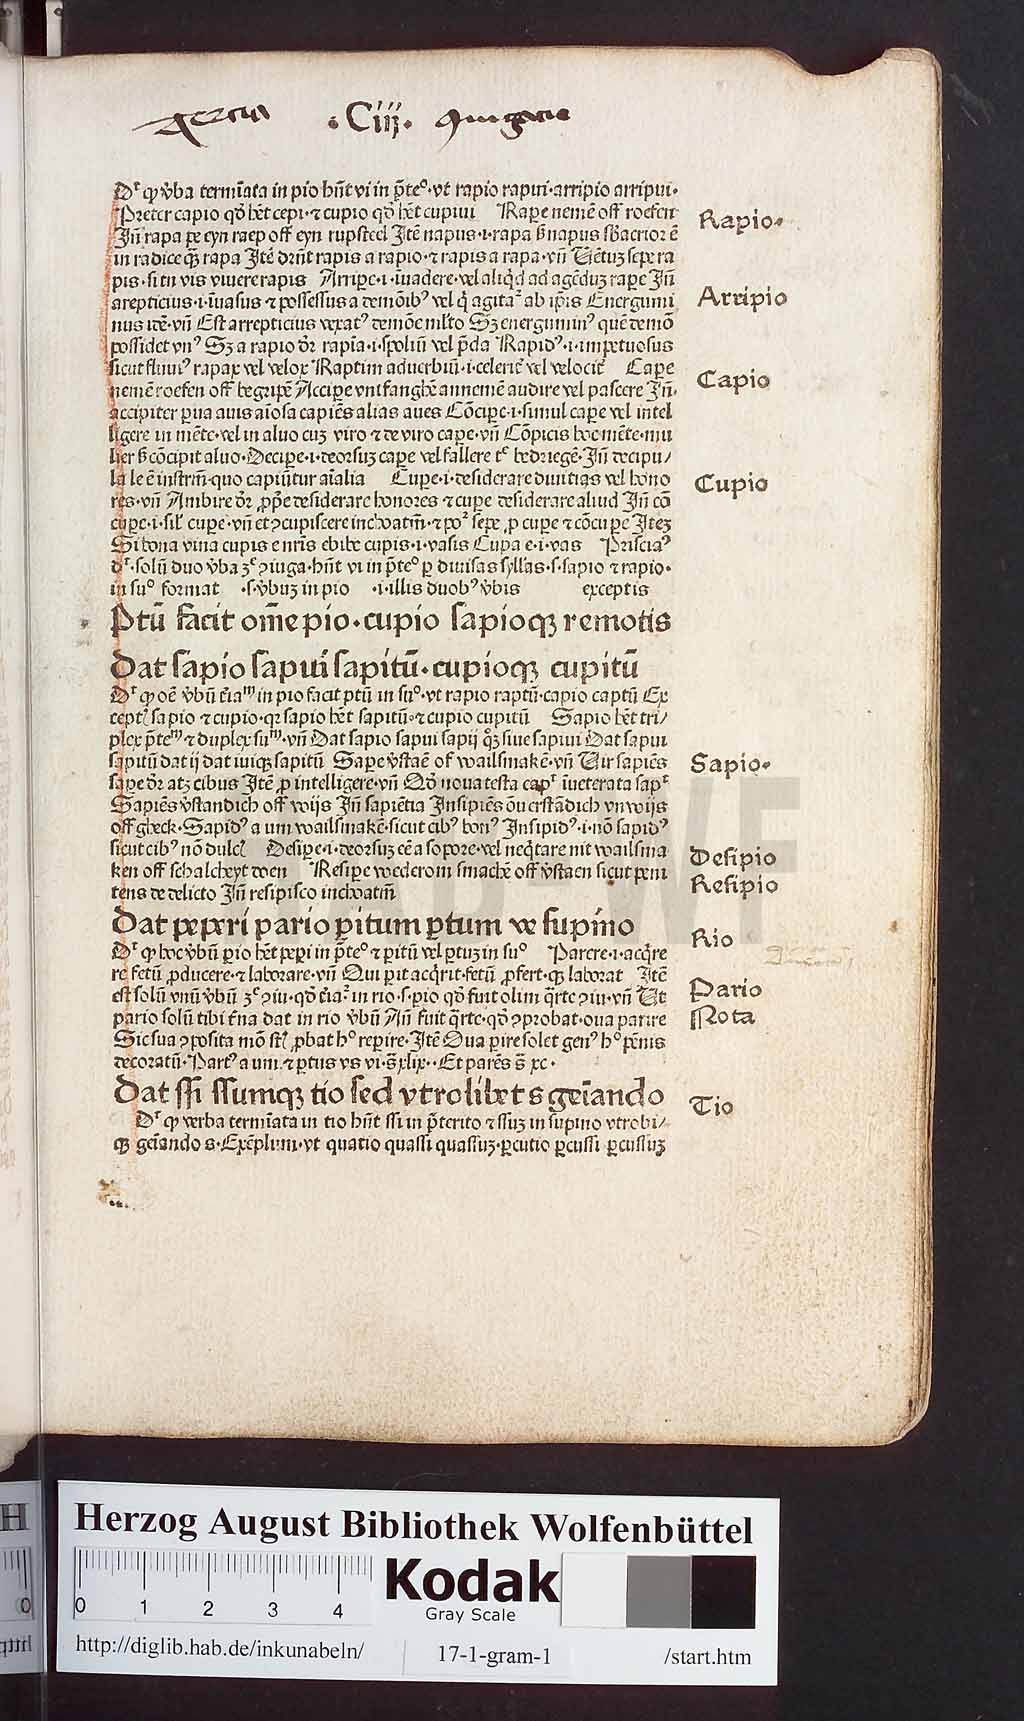 Tercia ·Ciiij· Coniugacio
Dr ꝙ v̾ba termīata in pio hn̄t vi in p̄te°·vt rapio rapui·arripio arripui·
Preter capio qd̾ hēt cepi·⁊ cupio qd̾ hēt cupiui Rape nemē off roefen
Rapio·
Jn̄ rapa ꝑe eyn raep off eyn rupsteel Jtē napus·i·rapa
in radice qꝫ rapa Jtē drn̄t rapis a rapio·⁊ rapis a rapa·vn̄ Uētuꝫ sepe ra
pis·si tn vis viuere rapis Arripe·i·īuadere·vel aliqd ad agēduꝫ rape Jn̄
Arripio
arepticius·i·īuasus ⁊ possessus a demōibꝰ vel q agitar ab ip̄is Energumi
nus idē·vn̄ Est arrepticius vexatꝰ demōe ml̄to Sꝫ energuminꝰ quē demō
possidet vnꝰ Sꝫ a rapio dr̄ rapīa·i·spoliū vel p̄da Rapidꝰ·i·impetuosus
sicut fluuiꝰ rapax vel velox Raptim aduerbiū·i·celerit̄ vel velocit̄ Cape
Capio
nemē roefen off begripē Accipe vntfanghē annemē audire vel pascere Jn̄·
accipiter ꝑua auis aīosa capiēs alias aues Cōcipe·i·simul cape vel intel
ligere in mēte·vel in aluo cuꝫ viro ⁊ de viro cape·vn̄ Cōpicis hoc mēte·mu
lier cōcipit aluo·Decipe·i·deorsuꝫ cape vel fallere bedriegē·Jn̄ decipu/
la le ē instrm̄·quo capiūtur aīalia Cupe·i·desiderare diuitias vel hono
Cupio
res·vn̄ Ambire dr̄ ꝓpe desiderare honores ⁊ cupe desiderare aliud Jn̄ cō
cupe·i·sil̾ cupe·vn̄ et ꝯcupiscere inchoatm̄·⁊ por̄ sepe ꝓ cupe ⁊ cōcupe Jteꝫ
Si bona vina cupis e nr̄is ebibe cupis·i·vasis Cupa e·i·vas Prisciaꝰ
dr·solū duo v̾ba ꝫe ꝯiuga·hn̄t vi in p̄te° ꝑ diuisas syllas·s·sapio ⁊ rapio·
in su° format ·s·v̾buꝫ in pio ·i·illis duobꝰ v̾bis exceptis
Ptū facit om̄e pio·cupio sapioqꝫ remotis
Dat sapio sapui sapitū·cupioqꝫ cupitū
Dr ꝙ oē v̾bū tīam in pio facit ptū in su°·vt rapio raptū·capio captū Ex
cept sapio ⁊ cupio·qꝛ sapio hēt sapitū·⁊ cupio cupitū Sapio hēt tri/
plex p̄tem ⁊ duplex sum·vn̄ Dat sapio sapui sapij siue sapiui Dat sapui
sapitū dat ij dat iuiqꝫ sapitū Sape v̾staē of wailsmakē·vn̄ Uir sapiēs
Sapio·
sape dr̄ atꝫ cibus Jtē ꝓ intelligere·vn̄ Qd̾ noua testa capt īueterata sapt
Sapiēs v̾standich off wijs Jn̄ sapiētia Jnsipiēs ōuerstādich vnwijs
off gheck·Sapidꝰ a um wailsmakē·sicut cibꝰ bonꝰ Jnsipidꝰ·i·nō sapidꝰ
sicut cibꝰ nō dulc Desipe·i·deorsuꝫ cē a sopore·vel neqtare nit wailsma
Desipio
ken off schalcheyt doen Resipe wederom smachē off v̾staen sicut peni
Resipio
tens de delicto Jn̄ resipisco inchoatm̄
Dat peperi pario ꝑitum ꝑtum ve supino
Dr ꝙ hoc v̾bū ꝑio hēt peꝑi in p̄te° ⁊ ꝑitū vel ꝑtuꝫ in su° Parere·i·acqre
Rio
re fetū ꝓducere·⁊ laborare·vn̄ Qui ꝑit acqrit·fetū ꝓfert·qꝫ laborat Jtē
est solū vnū v̾bū ꝫe ꝯiu·qd̾ tīar in rio·s·ꝑio qd̾ fuit olim qrte ꝯiu·vn̄ Ut
Pario
pario solū tibi t̄na dat in rio v̾bū Jn̄ fuit qrte·qd̾ ꝯprobat·oua parire
Nota
Sic sua ꝯposita mō st ꝓbat h° reꝑire·Jtē Oua ꝑire solet genꝰ h° pēnis
decoratū·Partꝰ a um ⁊ ꝑtus vs vi·s̄ xlix··Et parēs s̄ xc·
Dat ssi ssumqꝫ tio sed vtrolibet s geīando
Tio
Dr ꝙ verba termīata in tio hn̄t ssi in p̄terito ⁊ ssuꝫ in supino vtrobi/
qꝫ geīando s·Exēplum·vt quatio quassi quassuꝫ·ꝑcutio ꝑcussi ꝑcussuꝫ
HAB-WF
Herzog August Bibliothek Wolfenbüttel
0 1 2 3 4
Kodak
Gray Scale
http://diglib.hab.de/inkunabeln/ 17-1-gram-1 /start.htm